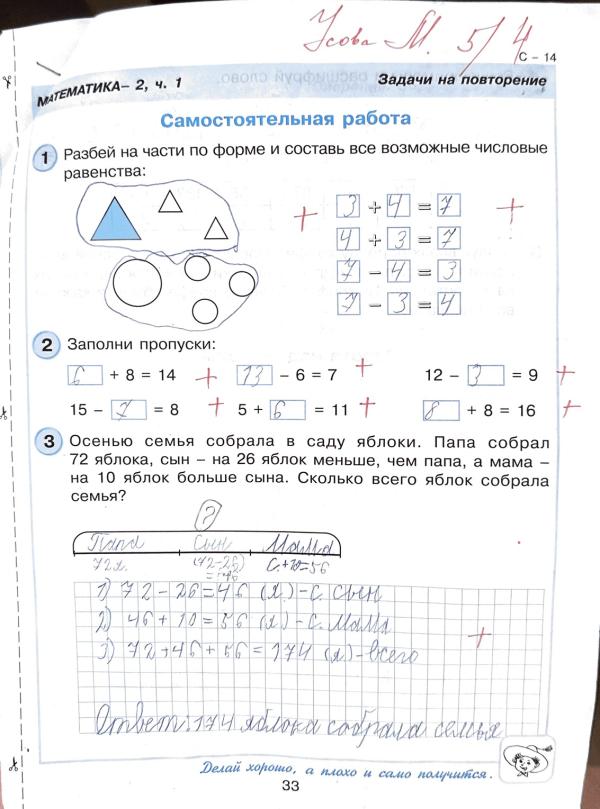 Усова М. 5/4
С – 14
МАТЕМАТИКА– 2, ч. 1 Задачи на повторение
Самостоятельная работа
1 Разбей на части по форме и составь все возможные числовые
равенства:
+ 3 + 4 = 7 +
4 + 3 = 7
7 – 4 = 3
7 – 3 = 4
2 Заполни пропуски:
6 + 8 = 14 + 13 – 6 = 7 + 12 – 3 = 9 +
15 – 7 = 8 + 5 + 6 = 11 + 8 + 8 = 16 +
3 Осенью семья собрала в саду яблоки. Папа собрал
72 яблока, сын – на 26 яблок меньше, чем папа, а мама –
на 10 яблок больше сына. Сколько всего яблок собрала
семья?
?
Папа Сын Мама
72 я. (72–26) С.+10=56
=46
1) 72 – 26 = 46 (я.) – с. сын
2) 46 + 10 = 56 (я.) – с. мама
3) 72 + 46 + 56 = 174 (я.) – всего
+
Ответ: 174 яблока собрала семья
Делай хорошо, а плохо и само получится.
33